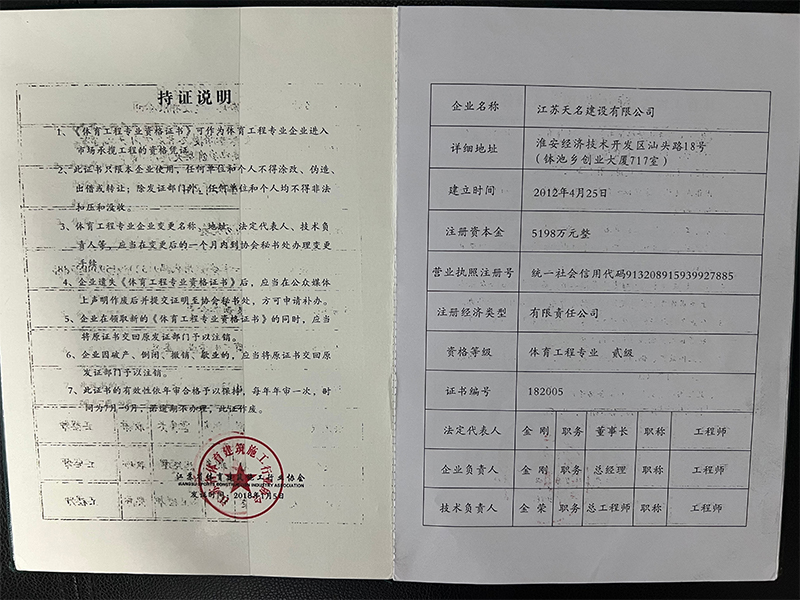 持证说明
1、《体育工程专业资格证书》可作为体育工程专业企业进入
市场承揽工程的资格凭证。
2、此证书只限本企业使用，任何单位和个人不得涂改、伪造、
出借或转让；除发证部门外，任何单位和个人均不得非法
扣压和没收。
3、体育工程专业企业变更名称、地址、法定代表人、技术负
责人等，应当在变更后的一个月内到协会秘书处办理变更
手续。
4、企业遗失《体育工程专业资格证书》后，应当在公众媒体
上声明作废后并提交证明至协会秘书处，方可申请补办。
5、企业在领取新的《体育工程专业资格证书》的同时，应当
将原证书交回原发证部门予以注销。
6、企业因破产、倒闭、撤销、歇业的，应当将原证书交回原
发证部门予以注销。
7、此证书的有效性依年审合格予以保持，每年年审一次，时
间为7月-9月，若逾期不办理，此证作废。
江苏省体育建筑施工行业协会
JIANGSU SPORTS CONSTRUCTION INDUSTRY ASSOCIATION
发证时间：2018年1月5日
企业名称 江苏天名建设有限公司
详细地址 淮安经济技术开发区汕头路18号
（钵池乡创业大厦717室）
建立时间 2012年4月25日
注册资本金 5198万元整
营业执照注册号 统一社会信用代码913208915939927885
注册经济类型 有限责任公司
资格等级 体育工程专业 贰级
证书编号 182005
法定代表人 金刚 职务 董事长 职称 工程师
企业负责人 金刚 职务 总经理 职称 工程师
技术负责人 金荣 职务 总工程师 职称 工程师